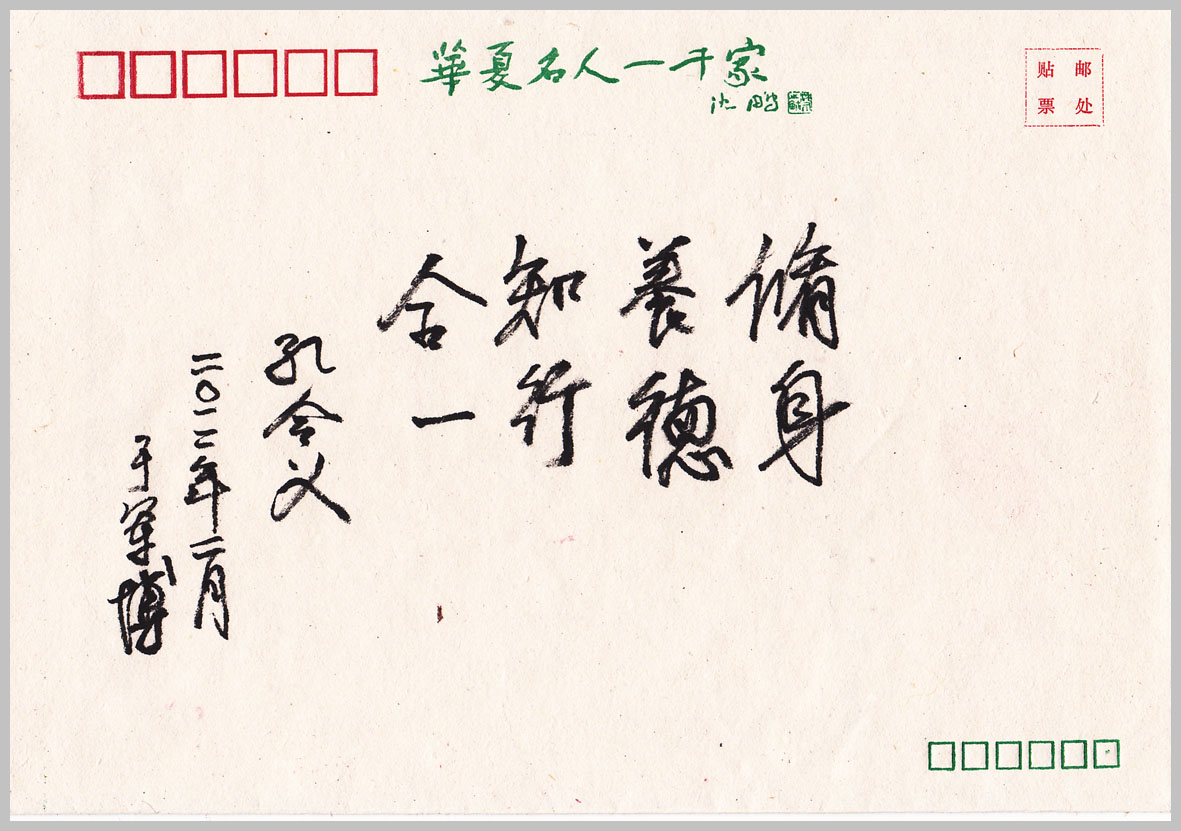 華夏名人一千家
沈鹏
贴邮
票处
脩身
養德
知行
合一
孔令义
二〇一二年二月
于军博